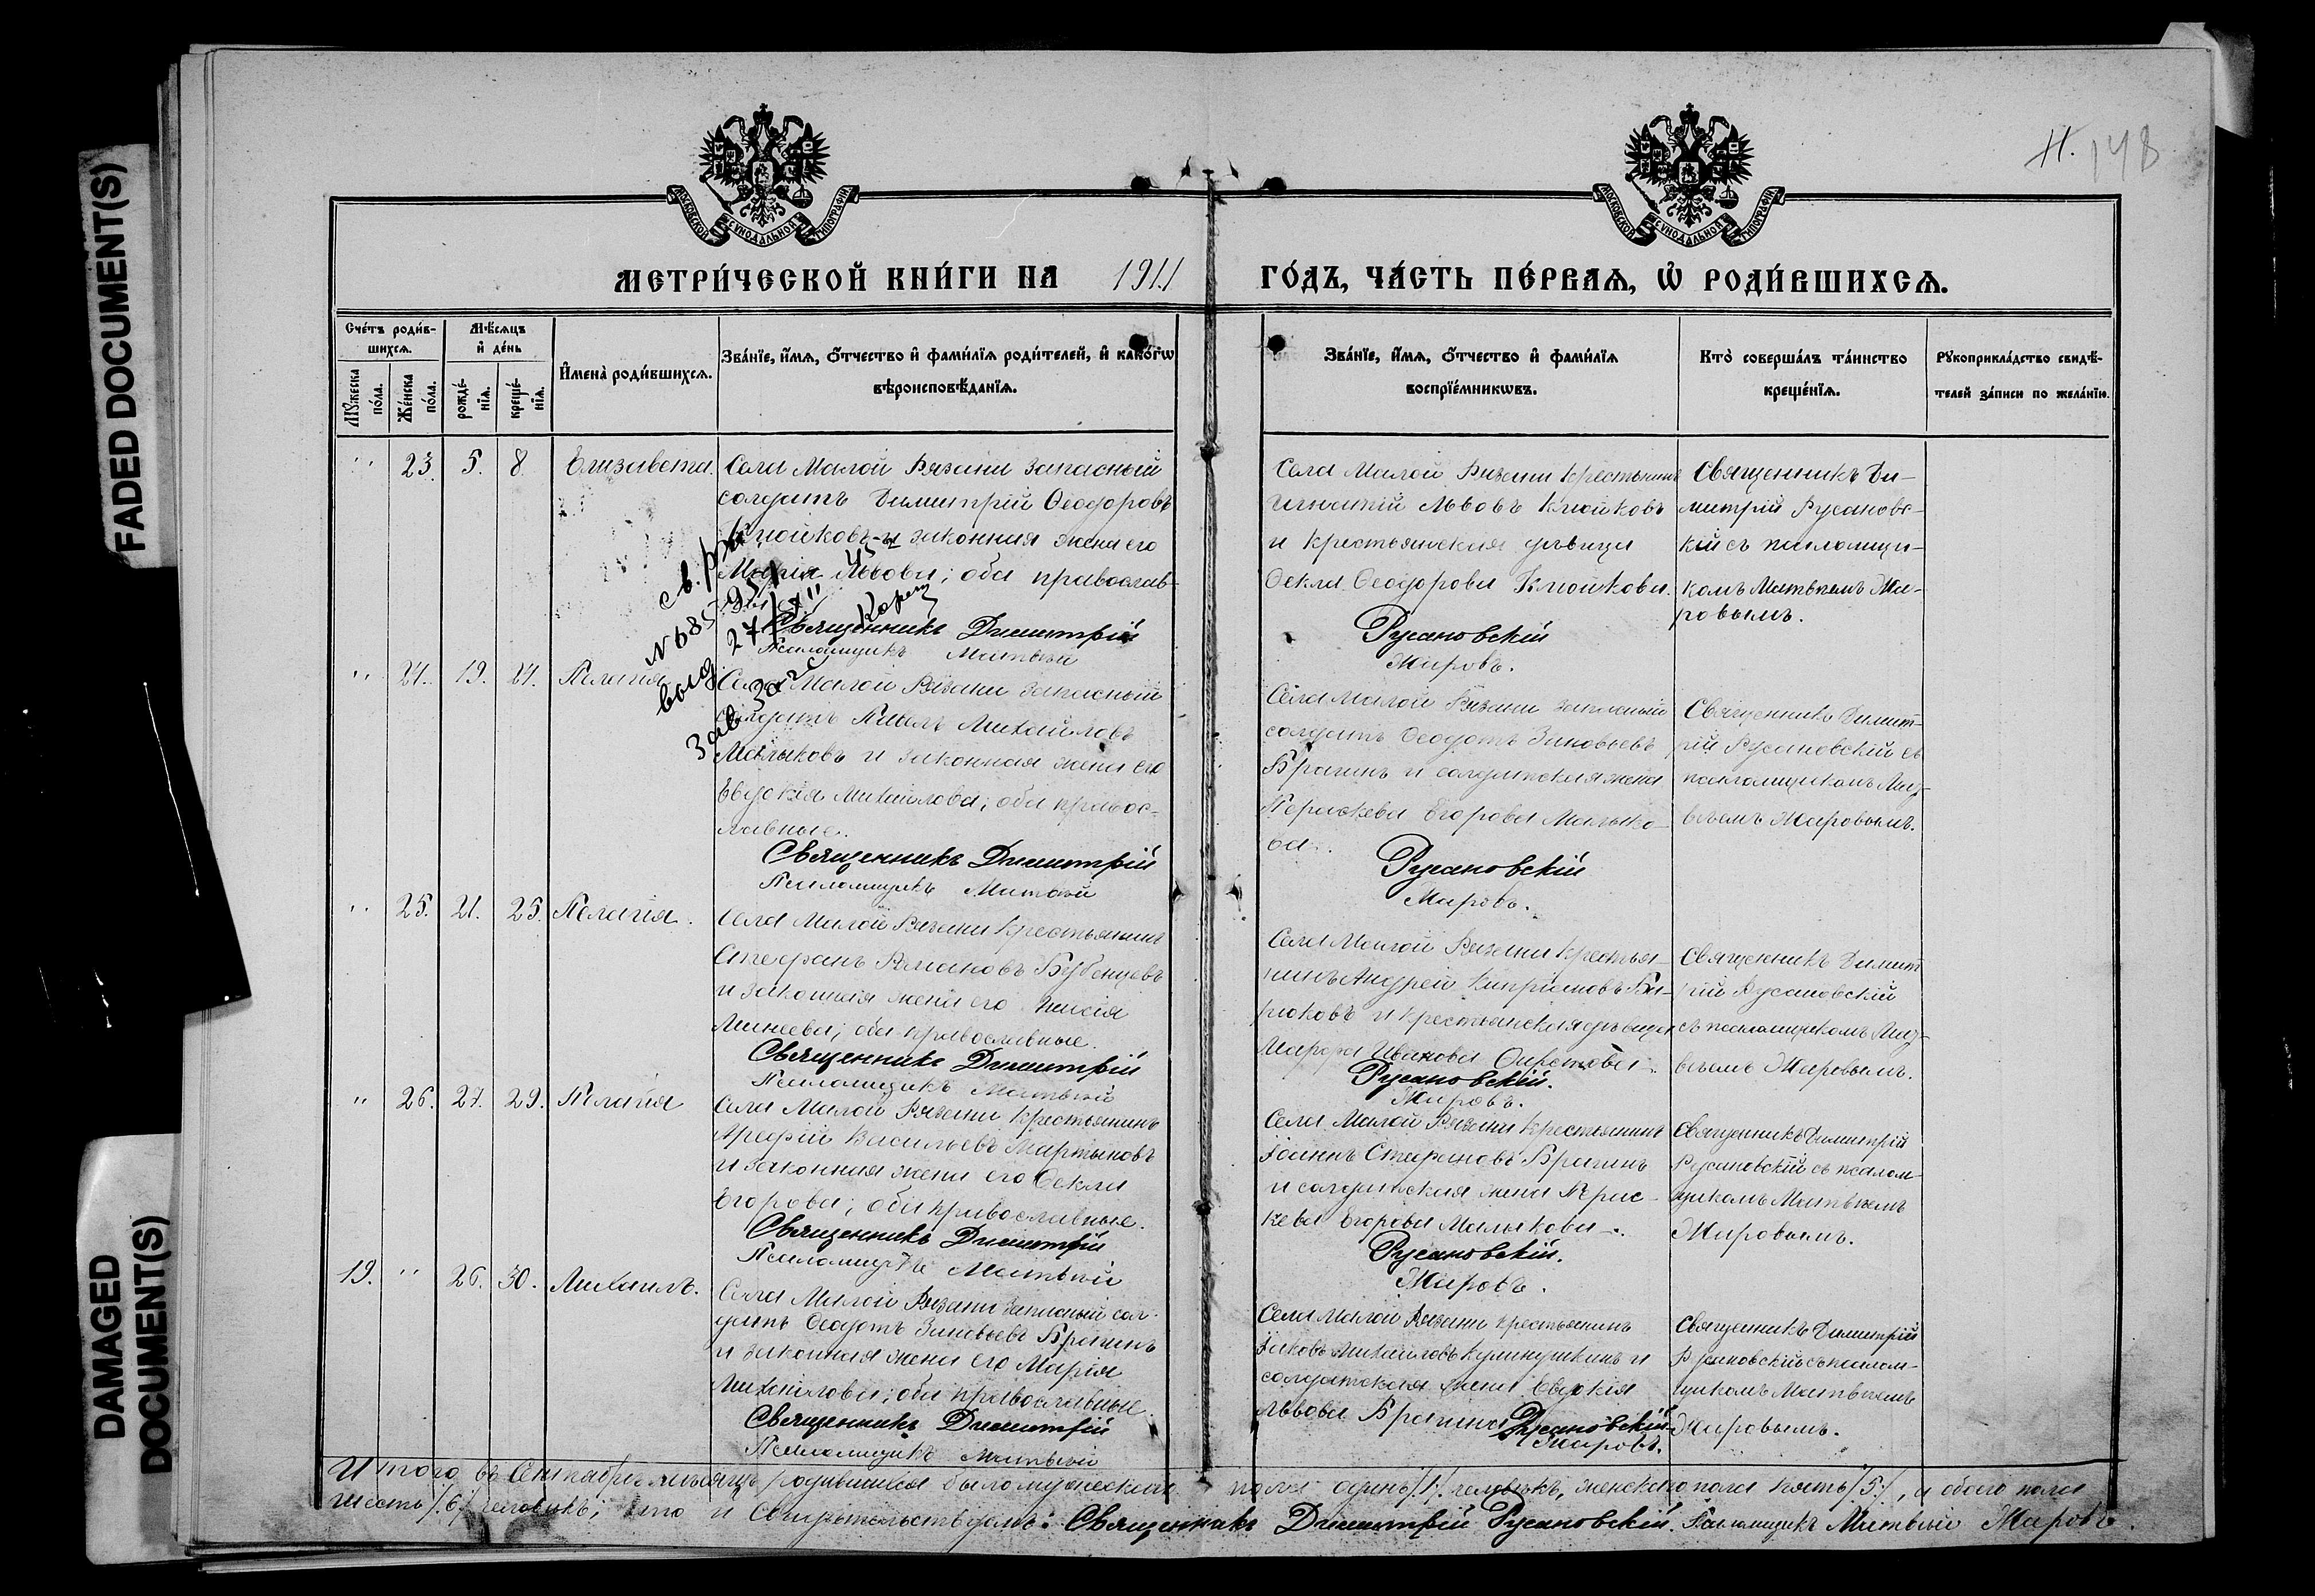 FADED DOCUMENT(S)
DAMAGED
DOCUMENT(S)
Н. 148
МОСКОВСКОЙ СѴНОДАЛЬНОЙ ТИПОГРАФІИ
МОСКОВСКОЙ СѴНОДАЛЬНОЙ ТИПОГРАФІИ
МЕТРИ́ЧЕСКОЙ КНИ́ГИ НА 1911 ГО́ДЪ, ЧА́СТЬ ПЕ́РВАѦ, Ѡ҆ РОДИ́ВШИХСѦ.
Сче́тъ роди́в-
шихсѧ.
Мꙋ́жеска
по́ла.
Же́нска
по́ла.
Мѣ́сѧцъ
и҆ де́нь
рожде́-
нїѧ.
креще́-
нїѧ.
И҆мена̀ роди́вшихсѧ.
Зва́нїе, и҆́мѧ, ѻ҆́тчество и҆ фами́лїѧ роди́телей, и҆ како́гѡ
вѣроисповѣ́данїѧ.
Зва́нїе, и҆́мѧ, ѻ҆́тчество и҆ фами́лїѧ
воспрїе́мникѡвъ.
Кто̀ соверша́лъ та́инство
креще́нїѧ.
Рꙋкоприкла́дство свидѣ́-
телей за́писи по жела́нїю.
" 23. 5. 8. Елизавета.
Села Малой Рязани запасный
солдатъ Димитрій Ѳеодоровъ
Клюйковъ и законная жена его
Марія Львова; оба православ-
Священникъ Димитрій
Псаломщикъ Матвѣй
Села Малой Рязани крестьянинъ
Игнатій Львовъ Клюйковъ
и крестьянская дѣвица
Ѳекла Ѳеодорова Клюйкова.
Русановскій
Жаровъ.
Священникъ Ди-
митрій Русановс-
кій съ псаломщи-
комъ Матвѣемъ Жа-
ровымъ.
№ 685
выд. 27/XII
" 24. 19. 24. Пелагія
Села Малой Рязани запасный
солдатъ Павелъ Михайловъ
Малыковъ и законная жена его
Евдокія Михайлова; оба правос-
лавные.
Священникъ Димитрій
Псаломщикъ Матвѣй
Села Малой Рязани запасный
солдатъ Ѳеодотъ Зиновьевъ
Брагинъ и солдатская жена
Параскева Егорова Малыко-
ва.
Русановскій
Жаровъ.
Священникъ Димит-
рій Русановскій съ
псаломщикомъ Мат-
вѣемъ Жаровымъ.
" 25. 21. 25. Пелагія.
Села Малой Рязани крестьянинъ
Стефанъ Бубенцевъ
и законная жена его
Минеева; оба православные.
Священникъ Димитрій
Псаломщикъ Матвѣй
Села Малой Рязани крестья-
нинъ Андрей Кипріановъ Би-
рюковъ и крестьянская дѣвица
Марфа Иванова
Русановскій.
Жаровъ.
Священникъ Димит
рій Русановскій
съ псаломщикомъ Мат-
вѣемъ Жаровымъ.
" 26. 27. 29. Пелагія
Села Малой Рязани крестьянинъ
Арефій Васильевъ Мартыновъ
и законная жена его Ѳекла
Егорова; оба православные.
Священникъ Димитрій
Псаломщикъ Матвѣй
Села Малой Рязани крестьянинъ
Іоаннъ Стефановъ Брагинъ
и солдатская жена Парас-
кева Егорова Малыкова.
Русановскій.
Жаровъ.
Священникъ Димитрій
Русановскій съ псалом-
щикомъ Матвѣемъ
Жаровымъ.
19. " 26. 30. Михаилъ.
Села Малой Рязани запасный сол-
датъ Ѳеодотъ Зиновьевъ Брагинъ
и законная жена его Марія
Михайлова; оба православные.
Священникъ Димитрій
Псаломщикъ Матвѣй
Села Малой Рязани крестьянинъ
Іаковъ Михайловъ Кулинушкинъ и
солдатская жена Евдокія
Львова Брагина
Русановскій
Жаровъ.
Священникъ Димитрій
Русановскій съ псалом-
щикомъ Матвѣемъ
Жаровымъ.
Итого въ Сентябрѣ мѣсяцѣ родившихся было мужескаго пола одинъ /1/ человѣкъ, женскаго пола пять /5/, а обоего пола
шесть /6/ человѣкъ; что и свидѣтельствуемъ: Священникъ Димитрій Русановскій. Псаломщикъ Матвѣй Жаровъ.